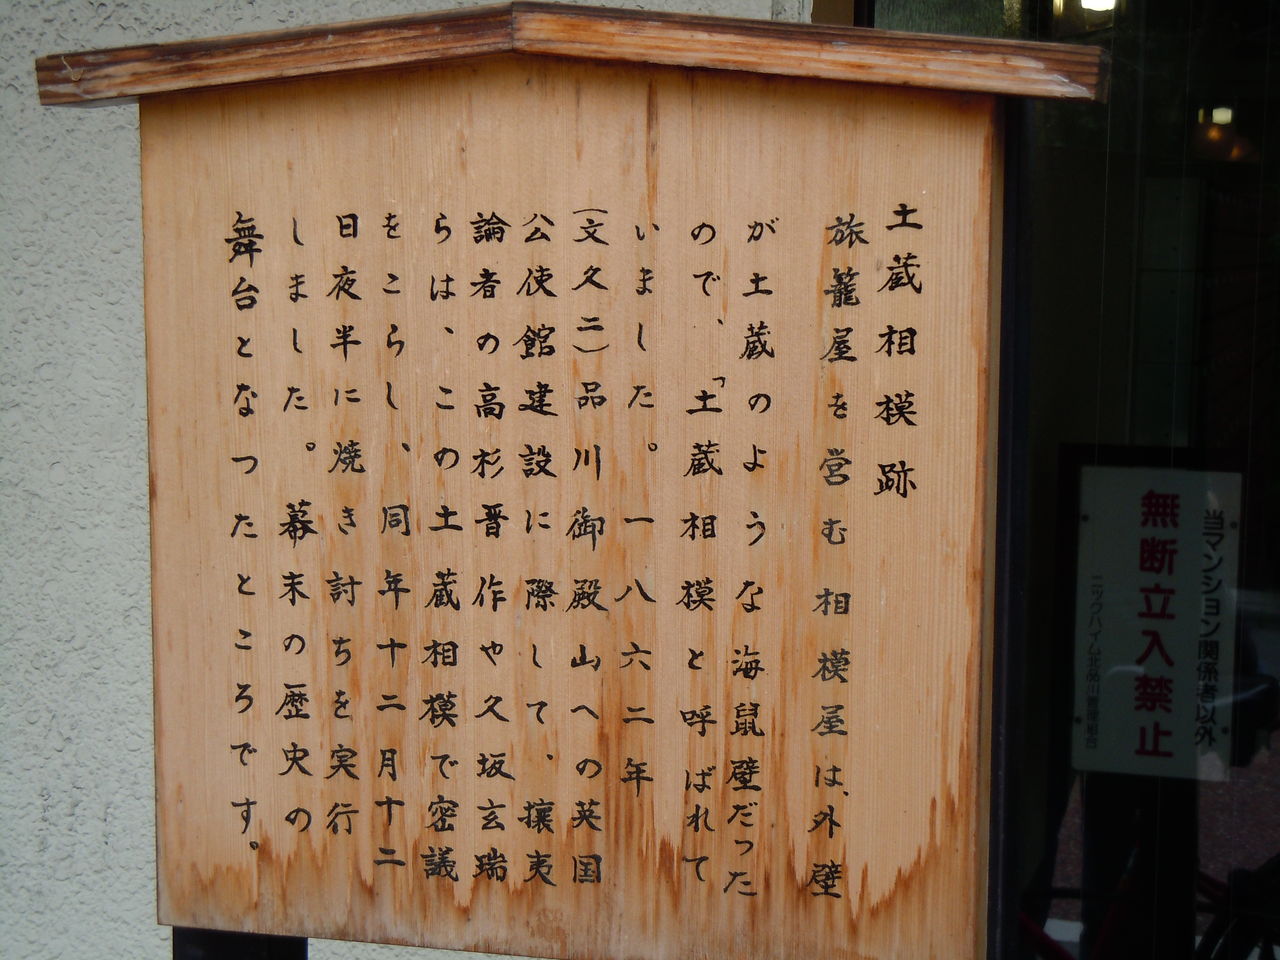 土蔵相模跡
旅籠屋を営む相模屋は、外壁
が土蔵のような海鼠壁だった
ので、「土蔵相模と呼ばれて
いました。一八六二年
(文久二)品川御殿山への英国
公使館建設に際して、攘夷
論者の高杉晋作や久坂玄瑞
らは、この土蔵相模で密議
をこらし、同年十二月十二
日夜半に焼き討ちを実行
しました。幕末の歴史の
舞台となったところです。
当マンション関係者以外
無断立入禁止
ニックハイム北品川管理組合